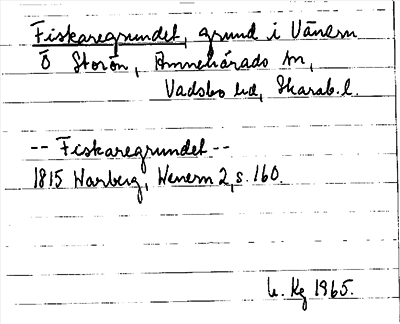 Fiskaregrundet, grund i Vänern
Ö Storön, Amnehärads sn,
Vadsbo hd, Skarab. l.
-- Fiskaregrundet --
1815 Warberg, Wenern 2, s. 160.
Kg 1965.